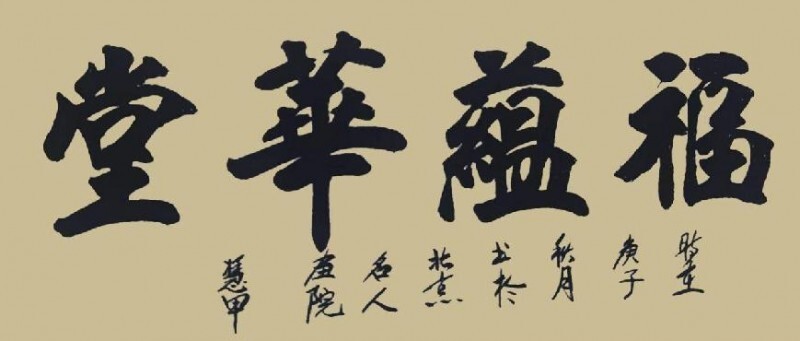 福蘊華堂
時在
庚子
秋月
书於
北京
名人
画院
慧甲